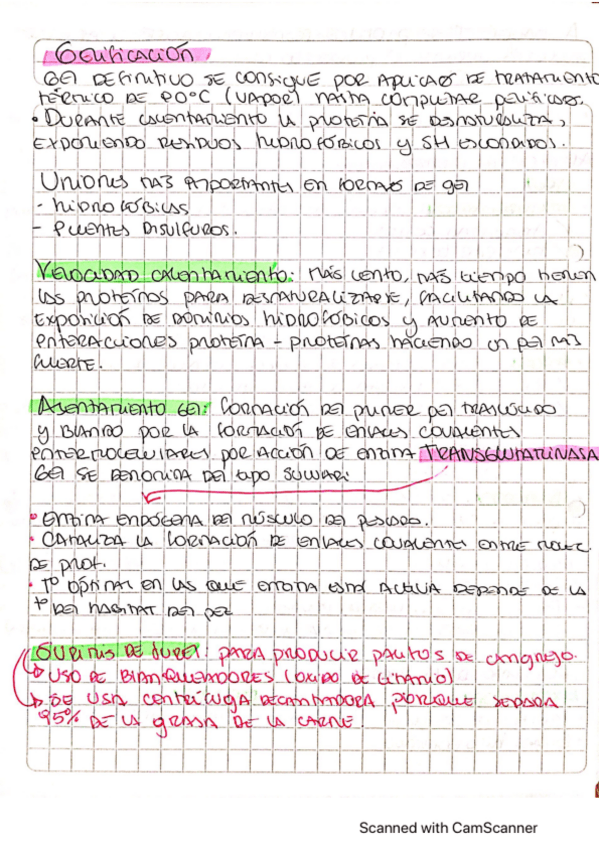 Gelificación
Gel definitivo se consigue por aplicado de tratamiento
térmico de 90°C (vapor) hasta completar gelificado.
• Durante calentamiento la proteína se desnaturaliza,
exponiendo residuos hidrofóbicos y SH escondidos.
Uniones más importantes en formado de gel
- hidrofóbicas
- Puentes disulfuros.
Velocidad calentamiento: más lento, más tiempo tienen
las proteínas para desnaturalizarse, facilitando la
exposición de dominios hidrofóbicos y aumento de
interacciones proteína - proteínas haciendo un gel más
fuerte.
Asentamiento gel: formación del primer gel traslúcido
y blando por la formación de enlaces covalentes
intermoleculares por acción de enzima TRANSGLUTAMINASA
Gel se denomina del tipo suwari
• Enzima endógena del músculo del pescado.
• Cataliza la formación de enlaces covalentes entre molec.
de prot.
• T° óptima en las que enzima está activa depende de la
t° del habitat del pez
Surimis de jurel: para producir palitos de cangrejo.
→ Uso de blanqueadores (óxido de titanio)
→ Se usa centrífuga decantadora porque separa
95% de la grasa de la carne.
Scanned with CamScanner